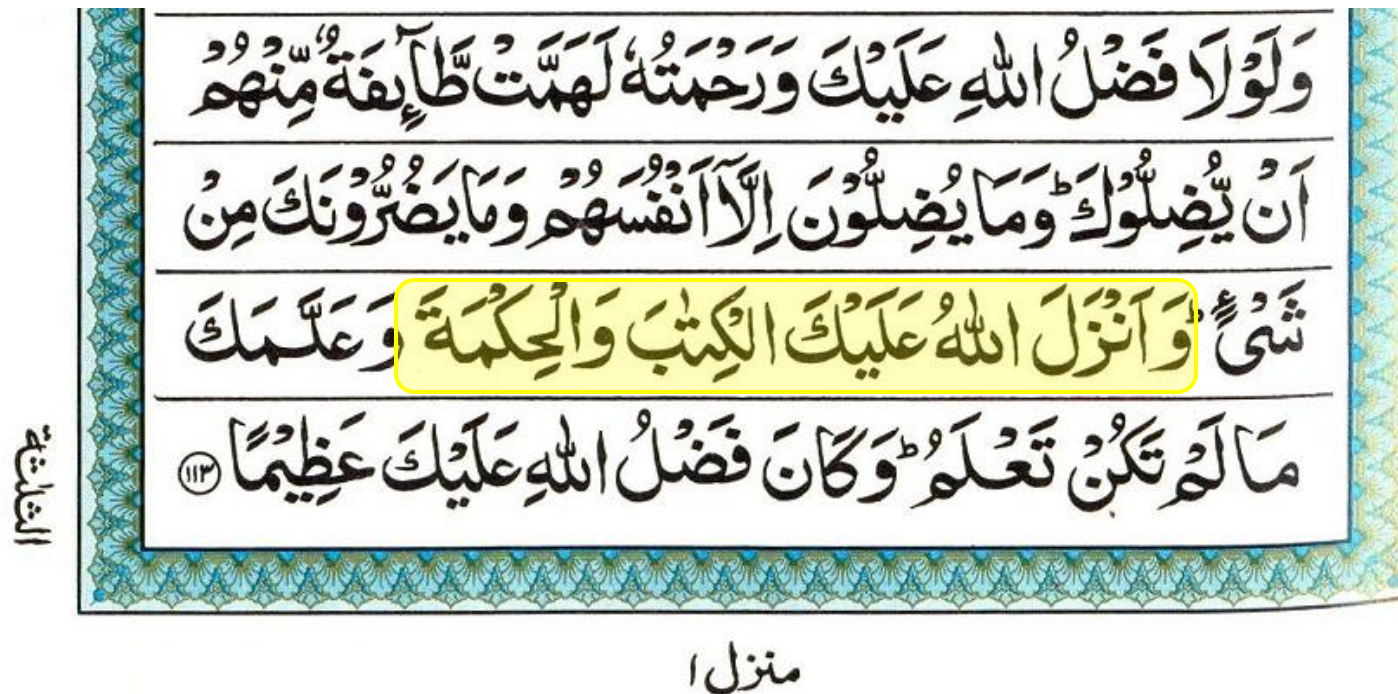 وَلَوْلَا فَضْلُ اللّٰهِ عَلَيْكَ وَرَحْمَتُهٗ لَهَمَّتْ طَّآئِفَةٌ مِّنْهُمْ
اَنْ يُّضِلُّوْكَ ؕ وَمَا يُضِلُّوْنَ اِلَّاۤ اَنْفُسَهُمْ وَمَا يَضُرُّوْنَكَ مِنْ
شَىْءٍ ؕ وَاَنْزَلَ اللّٰهُ عَلَيْكَ الْكِتٰبَ وَالْحِكْمَةَ وَعَلَّمَكَ
مَا لَمْ تَكُنْ تَعْلَمُ ؕ وَكَانَ فَضْلُ اللّٰهِ عَلَيْكَ عَظِيْمًا ﴿۱۱۳﴾
الثلٰثة
منزل ۱